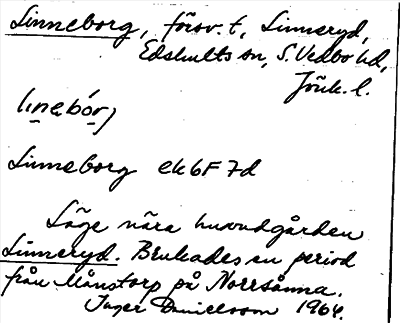 Linneborg, försv. t. Linneryd,
Edshults sn, S. Vedbo hd,
Jönk. l.
linebórj
Linneborg ek 6F 7d
Låge nära huvudgården
Linneryd. Brukades en period
från Månstorp på Norrsånna.
Inger Danielsson 1964.